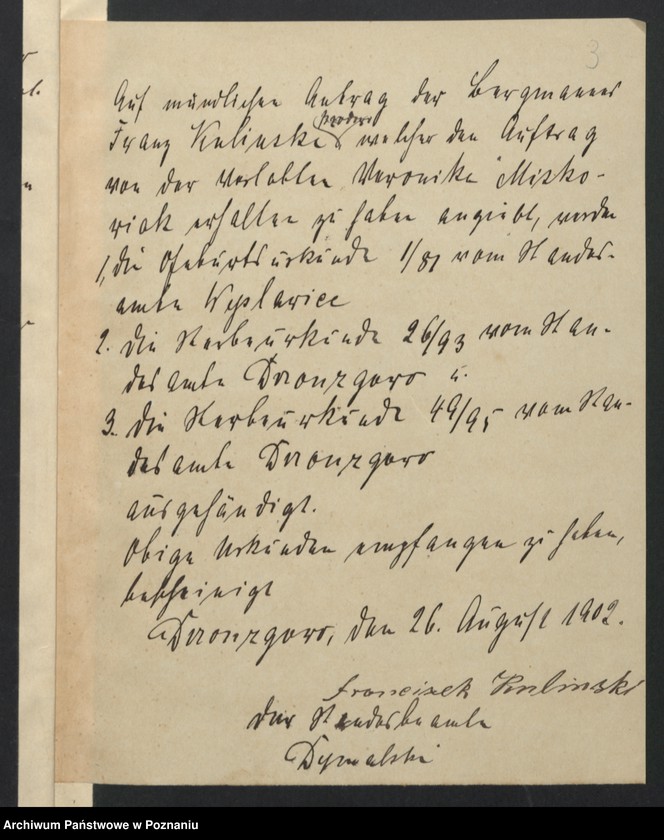 3
Auf mündlichen Antrag des Bergmannes
Franz Kulinski welcher den Auftrag
von der Verlobten Veronika Misko-
wiak erhalten zu haben angiebt, werden
1, die Geburtsurkunde 1/81 vom Standes-
amte
2. die Sterbeurkunde 26/93 vom Stan-
desamte Dionzgoro u.
3. die Sterbeurkunde 49/95 vom Stan-
desamte Dionzgoro
ausgehändigt.
Obige Urkunden empfangen zu haben,
bescheinigt
Dionzgoro, den 26. August 1902.
Franciszek Kulinski
Der Standesbeamte
Dymalski
Archiwum Państwowe w Poznaniu